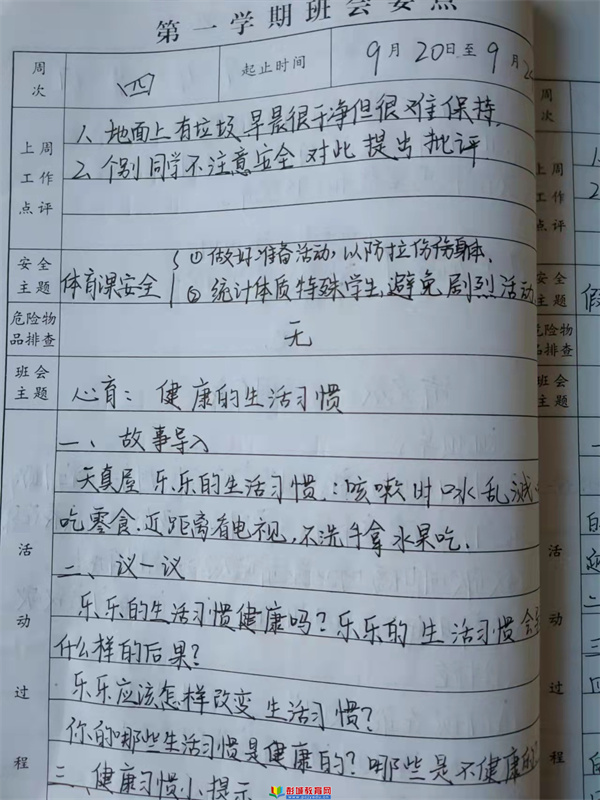 第一学期班会要点
周次 四 起止时间 9月20日至9月2
上周工作点评
1、地面上有垃圾早晨很干净但很难保持.
2、个别同学不注意安全 对此 提出 批评.
安全主题
体育课安全 ① 做好准备活动, 以防拉伤伤身体.
② 统计体质特殊学生,避免剧烈活动
危险物品排查 无
班会主题 心育: 健康的生活习惯
活动过程
一、故事导入
天真屋 乐乐的生活习惯:咳嗽时口水乱溅
吃零食.近距离看电视,不洗手拿水果吃.
二、议一议
乐乐的生活习惯健康吗?乐乐的生活习惯会
什么样的后果?
乐乐应该怎样改变生活习惯?
你的哪些生活习惯是健康的?哪些是不健康的
三、健康习惯小提示
周次
上周工作点评
安全主题
危险物品排查
班会主题
活动过程
彭城教育网